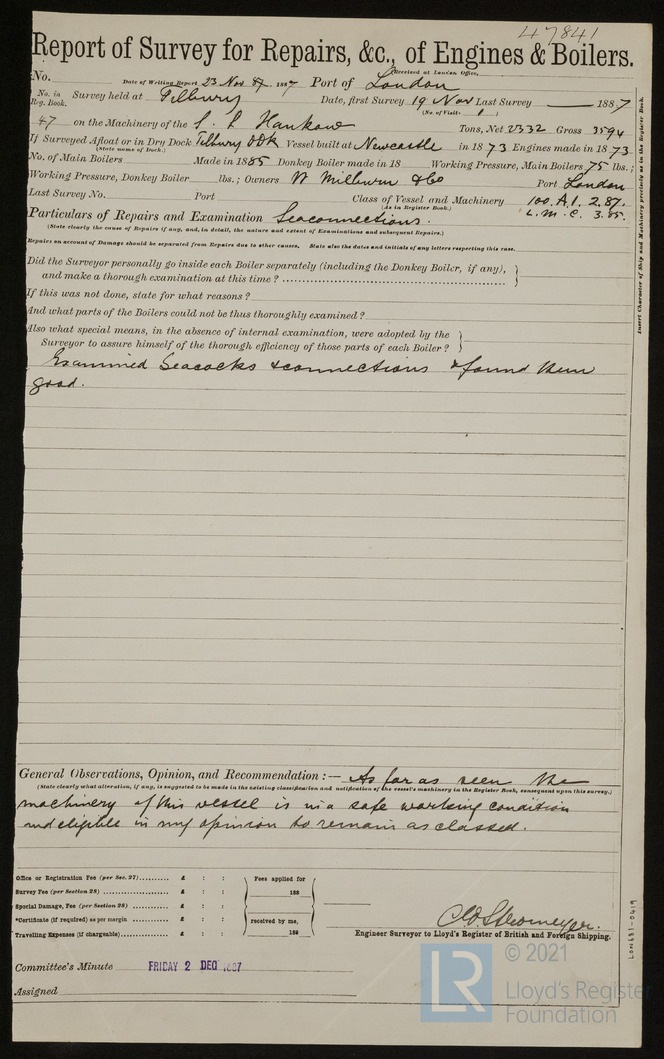 47841
Report of Survey for Repairs, &c., of Engines & Boilers.
(Received at London Office,
No. Date of Writing Report 23 Nov 87 1887 Port of London
No. in Reg. Book. Survey held at Tilbury Date, first Survey 19 Nov Last Survey — 1887
(No. of Visits 1 )
47 on the Machinery of the S. S Hankow Tons, Net 2332 Gross 3594
If Surveyed Afloat or in Dry Dock Tilbury DDk Vessel built at Newcastle in 1873 Engines made in 1873
(State name of Dock.)
No. of Main Boilers Made in 1885 Donkey Boiler made in 18 Working Pressure, Main Boilers 75 lbs.;
Working Pressure, Donkey Boiler lbs.; Owners W Milburn & Co Port London
Last Survey No. Port Class of Vessel and Machinery 100. A.1. 2.87.
(As in Register Book.) L. M. C. 3.85.
Particulars of Repairs and Examination Seaconnections.
(State clearly the cause of Repairs if any, and, in detail, the nature and extent of Examinations and subsequent Repairs.)
Repairs on account of Damage should be separated from Repairs due to other causes. State also the dates and initials of any letters respecting this case.
Did the Surveyor personally go inside each Boiler separately (including the Donkey Boiler, if any),
and make a thorough examination at this time?
If this was not done, state for what reasons?
And what parts of the Boilers could not be thus thoroughly examined?
Also what special means, in the absence of internal examination, were adopted by the
Surveyor to assure himself of the thorough efficiency of those parts of each Boiler?
Examined Seacocks & connections & found them
good.
General Observations, Opinion, and Recommendation:— As far as seen the
(State clearly what alteration, if any, is suggested to be made in the existing classification and notification of the vessel's machinery in the Register Book, consequent upon this survey.)
machinery of this vessel is in a safe working condition
and eligible in my opinion to remain as classed.
Office or Registration Fee (per Sec. 27).......... £ : :
Survey Fee (per Section 28) .......... £ : :
Special Damage, Fee (per Section 28) .......... £ : :
*Certificate (if required) as per margin .......... £ : :
Travelling Expenses (if chargeable).......... £ : :
Fees applied for
188
received by me,
188
C E Stromeyer.
Engineer Surveyor to Lloyd's Register of British and Foreign Shipping.
Committee's Minute FRIDAY 2 DEC 1887
Assigned
Insert Character of Ship and Machinery precisely as in the Register Book.
LON681-0419
© 2021
LR
Lloyd's Register
Foundation